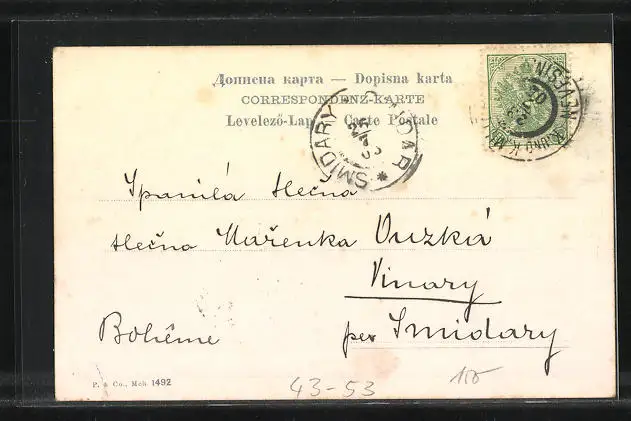 Дописна карта — Dopisna karta
CORRESPONDENZ-KARTE
Levelező-Lap — Carte Postale
SMIDARY
SMIDAR
NEVESIN
Spanilá slečna
slečna Mařenka Vuzká
Vinary
Bohême per Smidary
P. & Co., Meh 1492
43-53
150